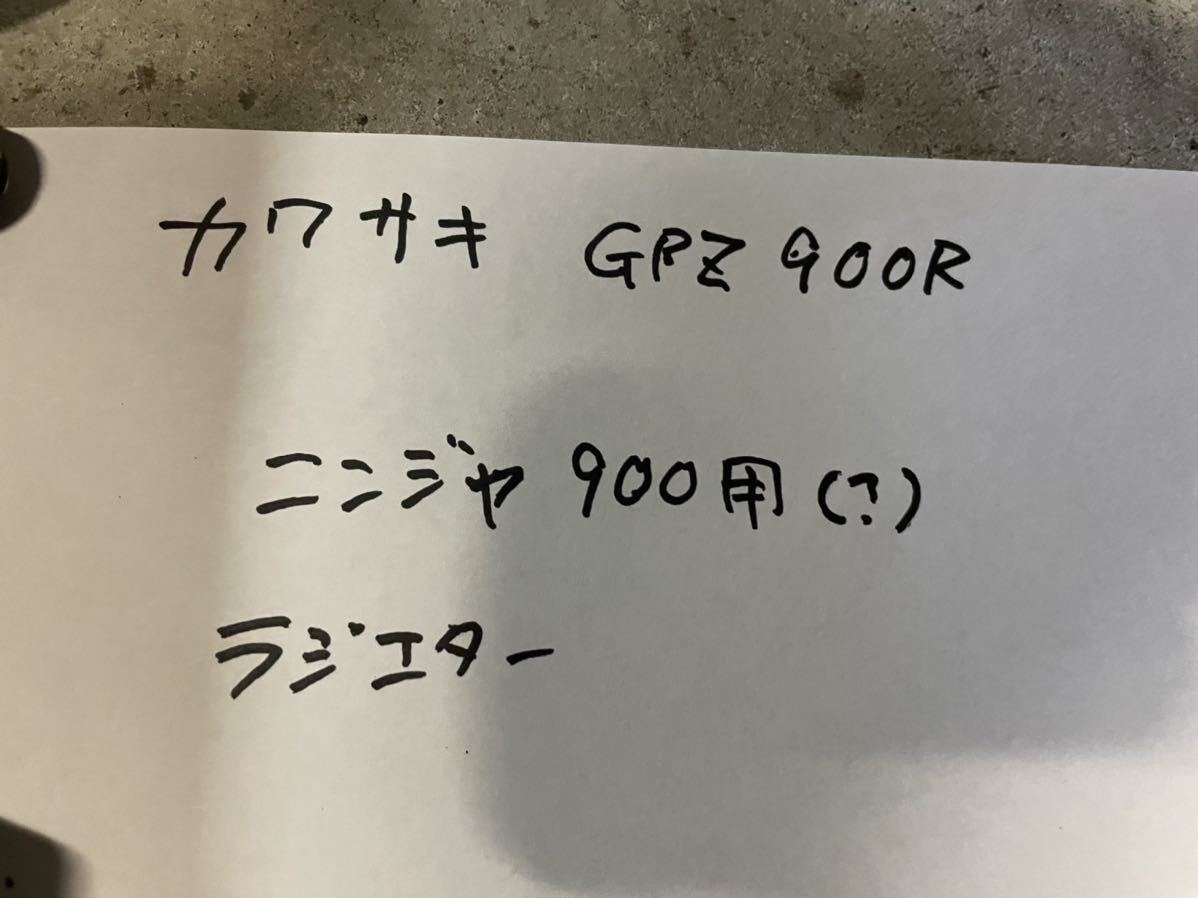 カワサキ GPZ 900R
ニンジャ 900用(?)
ラジエター